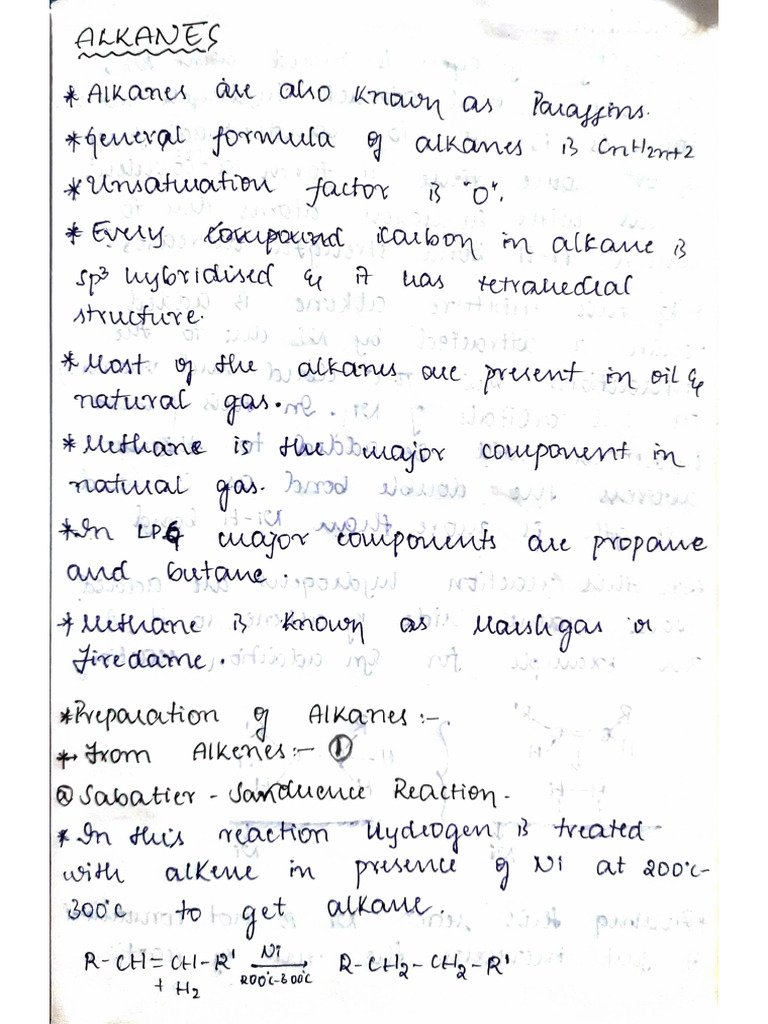 ALKANES
* Alkanes are also known as Paraffins.
* General formula of alkanes is CnH2n+2
* Unsaturation factor is "0".
* Every compound carbon in alkane is
sp³ hybridised & it has tetrahedral
structure.
* Most of the alkanes are present in oil &
natural gas.
* Methane is the major component in
natural gas.
* In LPG major components are propane
and butane.
* Methane is known as Marsh gas or
Firedame.
* Preparation of Alkanes :-.
* From Alkenes :- ①
ⓐ Sabatier - Sanduence Reaction -
* In this reaction Hydrogen is treated
with alkene in presence of Ni at 200°c-
300°c to get alkane.
R-CH=CH-R' + H2 Ni 200°c-300°c → R-CH2-CH2-R'